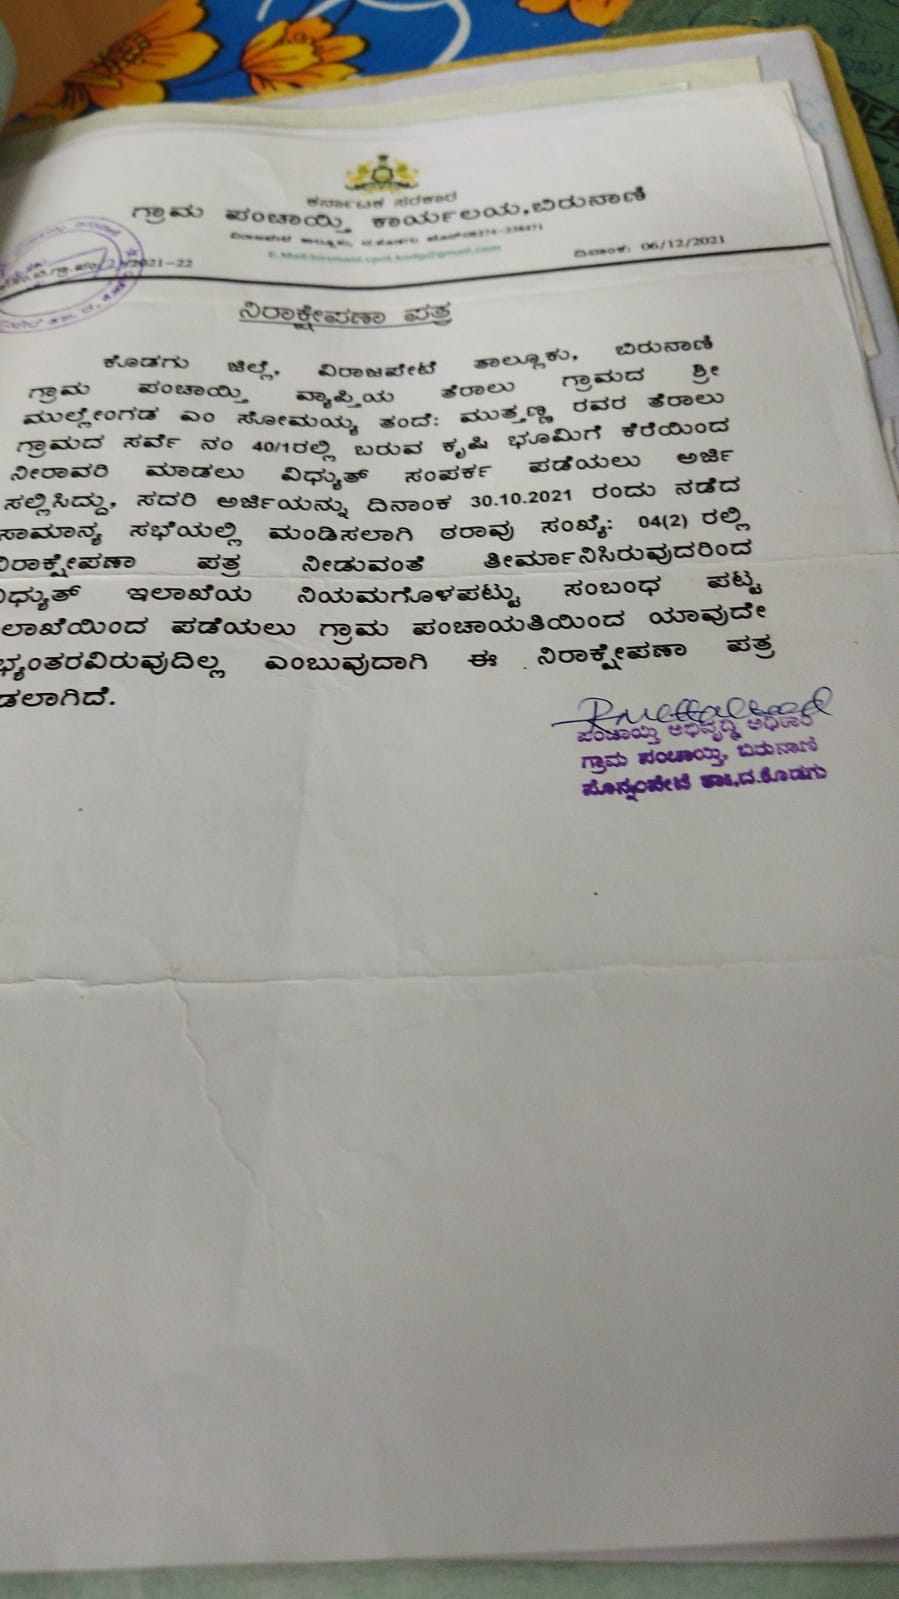 ಕರ್ನಾಟಕ ಸರಕಾರ
ಗ್ರಾಮ ಪಂಚಾಯ್ತಿ ಕಾರ್ಯಾಲಯ,ಬಿರುನಾಣಿ
2021-22
ದಿನಾಂಕ: 06/12/2021
ನಿರಾಕ್ಷೇಪಣಾ ಪತ್ರ
ಕೊಡಗು ಜಿಲ್ಲೆ, ವಿರಾಜಪೇಟೆ ತಾಲ್ಲೂಕು, ಬಿರುನಾಣಿ
ಗ್ರಾಮ ಪಂಚಾಯ್ತಿ ವ್ಯಾಪ್ತಿಯ ತೆರಾಲು ಗ್ರಾಮದ ಶ್ರೀ
ಮುಲ್ಲೇಂಗಡ ಎಂ ಸೋಮಯ್ಯ ತಂದೆ: ಮುತ್ತಣ್ಣ ರವರ ತೆರಾಲು
ಗ್ರಾಮದ ಸರ್ವೆ ನಂ 40/1ರಲ್ಲಿ ಬರುವ ಕೃಷಿ ಭೂಮಿಗೆ ಕೆರೆಯಿಂದ
ನೀರಾವರಿ ಮಾಡಲು ವಿಧ್ಯುತ್ ಸಂಪರ್ಕ ಪಡೆಯಲು ಅರ್ಜಿ
ಸಲ್ಲಿಸಿದ್ದು, ಸದರಿ ಅರ್ಜಿಯನ್ನು ದಿನಾಂಕ 30.10.2021 ರಂದು ನಡೆದ
ಸಾಮಾನ್ಯ ಸಭೆಯಲ್ಲಿ ಮಂಡಿಸಲಾಗಿ ಠರಾವು ಸಂಖ್ಯೆ: 04(2) ರಲ್ಲಿ
ನಿರಾಕ್ಷೇಪಣಾ ಪತ್ರ ನೀಡುವಂತೆ ತೀರ್ಮಾನಿಸಿರುವುದರಿಂದ
ವಿಧ್ಯುತ್ ಇಲಾಖೆಯ ನಿಯಮಗೊಳಪಟ್ಟು ಸಂಬಂಧ ಪಟ್ಟ
ಲಾಖೆಯಿಂದ ಪಡೆಯಲು ಗ್ರಾಮ ಪಂಚಾಯತಿಯಿಂದ ಯಾವುದೇ
ಭ್ಯಂತರವಿರುವುದಿಲ್ಲ ಎಂಬುವುದಾಗಿ ಈ ನಿರಾಕ್ಷೇಪಣಾ ಪತ್ರ
ಡಲಾಗಿದೆ.
ಪಂಚಾಯ್ತಿ ಅಭಿವೃದ್ಧಿ ಅಧಿಕಾರಿ
ಗ್ರಾಮ ಪಂಚಾಯ್ತಿ, ಬಿರುನಾಣಿ
ಪೊನ್ನಂಪೇಟೆ ತಾ.,ದ.ಕೊಡಗು